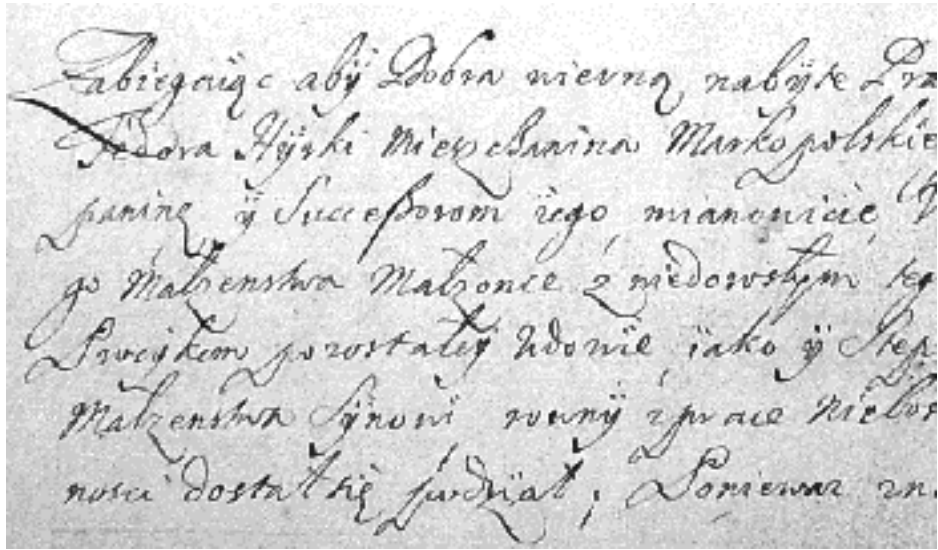 Zabiegaiąc abÿ Dobra nabÿte Pra
Fedora Hÿrki Mieszczanina Markopolskie
ÿ Successorom iego, mianowicie
go Małzenstwa Małzonce z niedorosłÿm teg
pozostałeÿ Wdowie, iako ÿ Step
Małzenstwa Sÿnowi rownÿ z prace Niebos
nosci dostał się podział; Poniewaz zna